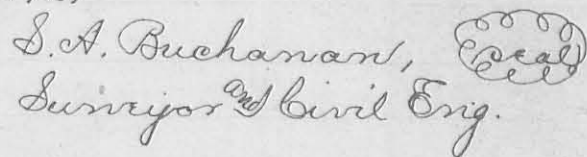 S. A. Buchanan, Seal
Surveyor and Civil Eng.